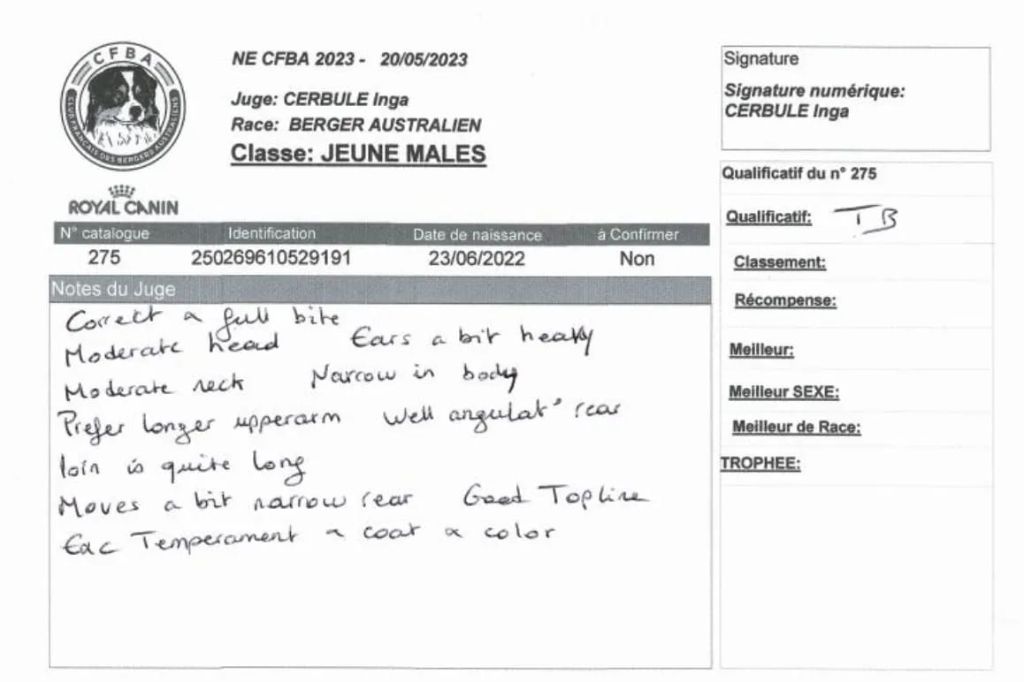 CFBA
CLUB FRANÇAIS DES BERGERS AUSTRALIENS
ROYAL CANIN
NE CFBA 2023 - 20/05/2023
Juge: CERBULE Inga
Race: BERGER AUSTRALIEN
Classe: JEUNE MALES
N° catalogue Identification Date de naissance à Confirmer
275 250269610529191 23/06/2022 Non
Notes du Juge
Correct & full bite
Moderate head Ears a bit heavy
Moderate neck Narrow in body
Prefer longer upperarm Well angulat° rear
loin is quite long
Moves a bit narrow rear Good Topline
Exc Temperament & coat & color
Signature
Signature numérique:
CERBULE Inga
Qualificatif du n° 275
Qualificatif: TB
Classement:
Récompense:
Meilleur:
Meilleur SEXE:
Meilleur de Race:
TROPHEE: